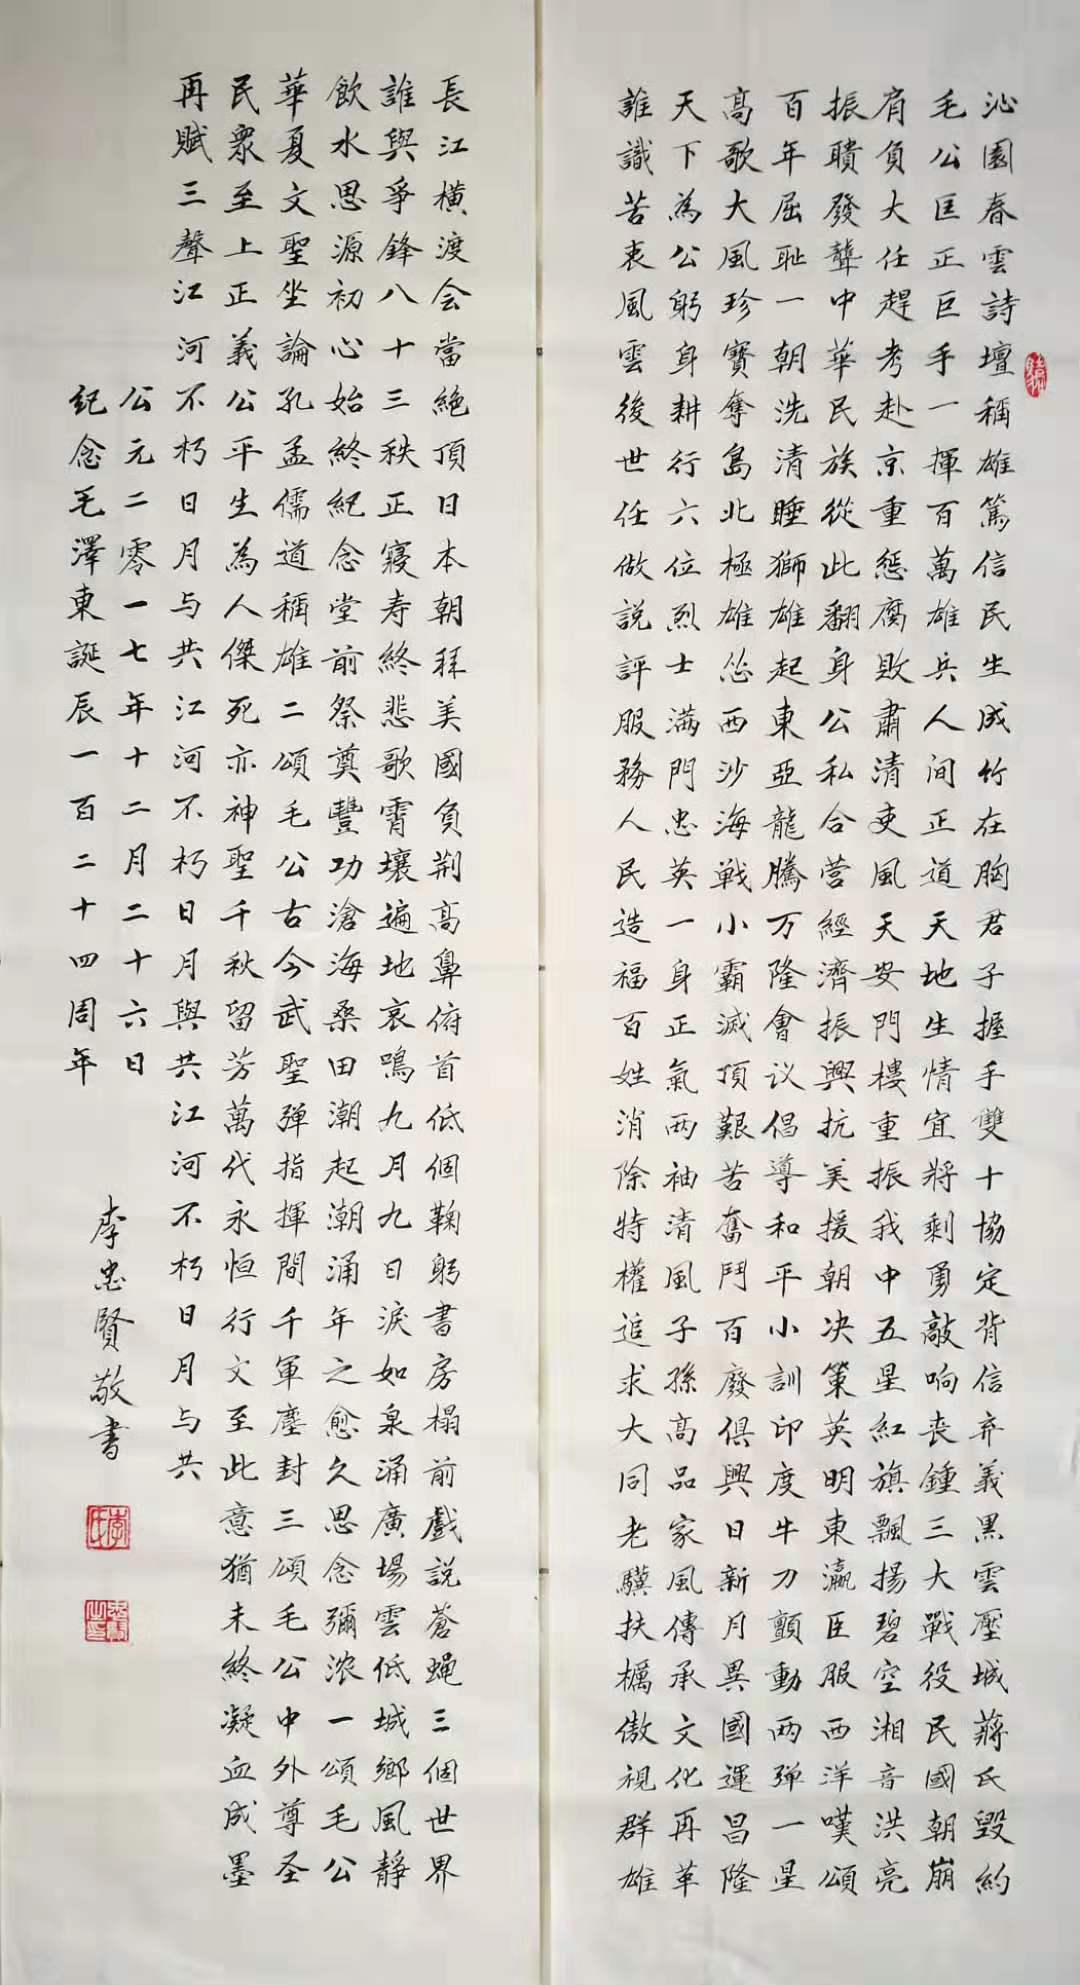 沁園春雲詩壇稱雄篤信民生成竹在胸君子握手雙十協定背信弃義黑雲壓城蔣氏毀約
毛公匡正巨手一揮百萬雄兵人间正道天地生情宜將剩勇敲响丧鍾三大戰役民國朝崩
肩負大任趕考赴京重懲腐敗肅清吏風天安門樓重振我中五星紅旗飄揚碧空湘音洪亮
振聵發聾中華民族從此翻身公私合营經濟振興抗美援朝决策英明東瀛臣服西洋嘆頌
百年屈耻一朝洗清睡獅雄起東亞龍騰万隆會议倡導和平小訓印度牛刀顫動两弹一星
高歌大風珍寶奪島北極雄怂西沙海戰小霸滅頂艱苦奮鬥百廢俱興日新月異國運昌隆
天下為公躬身耕行六位烈士满門忠英一身正氣两袖清風子孫高品家風傳承文化再革
誰識苦衷風雲後世任做説評服務人民造福百姓消除特權追求大同老驥扶櫪傲視群雄
長江横渡会當絶頂日本朝拜美國負荆高鼻俯首低個鞠躬書房榻前戲説蒼蝇三個世界
誰與爭鋒八十三秩正寢寿終悲歌霄壤遍地哀鳴九月九日淚如泉涌廣場雲低城鄉風靜
飲水思源初心始終紀念堂前祭奠豐功滄海桑田潮起潮涌年之愈久思念彌浓一頌毛公
華夏文聖坐論孔孟儒道稱雄二頌毛公古今武聖弹指揮間千軍塵封三頌毛公中外尊圣
民衆至上正義公平生為人傑死亦神聖千秋留芳萬代永恒行文至此意猶未終凝血成墨
再賦三聲江河不朽日月与共江河不朽日月與共江河不朽日月与共
公元二零一七年十二月二十六日
紀念毛澤東誕辰一百二十四周年
李忠賢敬書